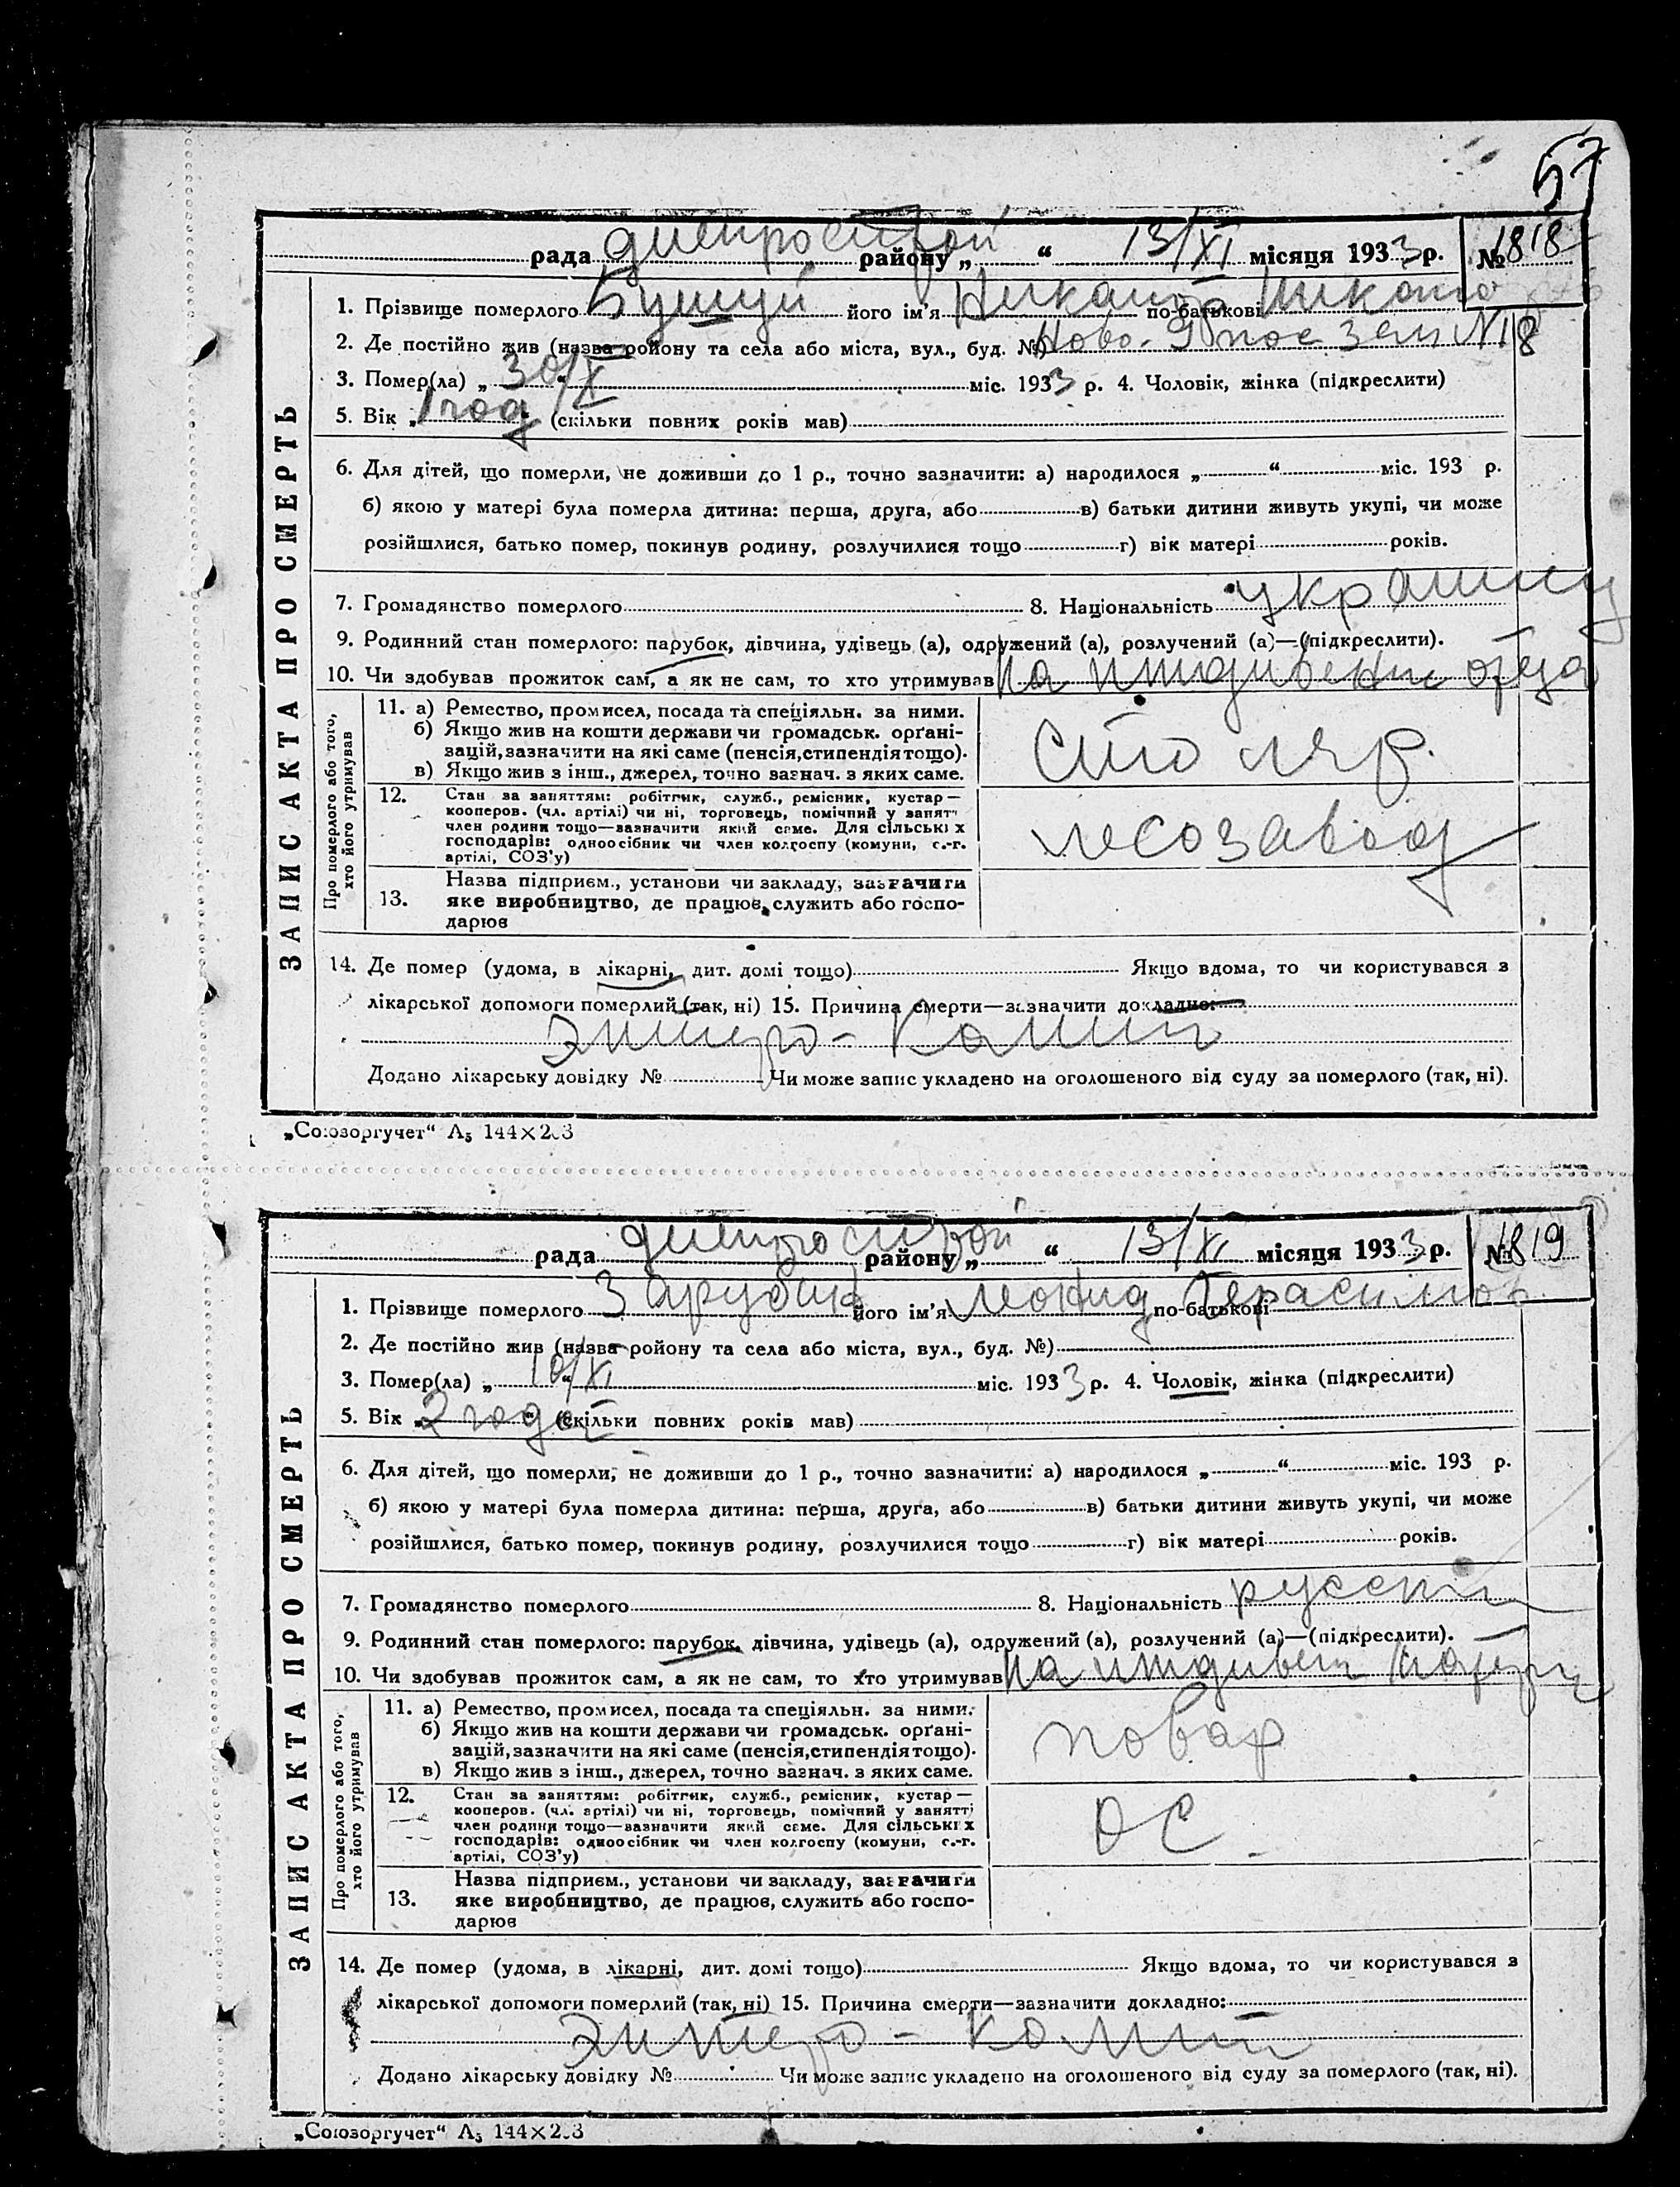 57
рада днепрострой району „ “ 13/XI місяця 1933 р. № 1818
1. Прізвище померлого його ім'я по-батькові
2. Де постійно жив (назва ройону та села або міста, вул., буд. №) Ново- пос зем № 18
3. Помер(ла) „ 30/X “ міс. 1933 р. 4. Чоловік, жінка (підкреслити)
5. Вік „ 1 год “ (скільки повних років мав)
6. Для дітей, що померли, не доживши до 1 р., точно зазначити: а) народилося „ “ міс. 193 р.
б) якою у матері була померла дитина: перша, друга, або в) батьки дитини живуть укупі, чи може
розійшлися, батько помер, покинув родину, розлучилися тощо г) вік матері років.
7. Громадянство померлого 8. Національність
9. Родинний стан померлого: парубок, дівчина, удівець (а), одружений (а), розлучений (а)—(підкреслити).
10. Чи здобував прожиток сам, а як не сам, то хто утримував На иждивении отца
ЗАПИС АКТА ПРО СМЕРТЬ
Про померлого або того, хто його утримував
11. а) Ремество, промисел, посада та спеціяльн. за ними.
б) Якщо жив на кошти держави чи громадськ. орґані-
зацій, зазначити на які саме (пенсія, стипендія тощо).
в) Якщо жив з інш., джерел, точно зазнач. з яких саме.
столяр.
12. Стан за заняттям: робітник, служб., ремісник, кустар—
кооперов. (чл. артілі) чи ні, торговець, помічний у занятт
член родини тощо—зазначити який саме. Для сільських
господарів: одноосібник чи член колгоспу (комуни, с.-г.
артілі, СОЗ'у)
лесозавод
13. Назва підприєм., установи чи закладу, зазначити
яке виробництво, де працює, служить або госпо-
дарює
14. Де помер (удома, в лікарні, дит. домі тощо) Якщо вдома, то чи користувався з
лікарської допомоги померлий (так, ні) 15. Причина смерти—зазначити докладно:
Энтеро-колит
Додано лікарську довідку № Чи може запис укладено на оголошеного від суду за померлого (так, ні).
„Союзоргучет“ А₅ 144×203
рада днепрострой району „ “ 13/XI місяця 1933 р. № 1819
1. Прізвище померлого його ім'я Леонид по-батькові Герасимов
2. Де постійно жив (назва ройону та села або міста, вул., буд. №)
3. Помер(ла) „ 10/XI “ міс. 1933 р. 4. Чоловік, жінка (підкреслити)
5. Вік „ 2 года “ (скільки повних років мав)
6. Для дітей, що померли, не доживши до 1 р., точно зазначити: а) народилося „ “ міс. 193 р.
б) якою у матері була померла дитина: перша, друга, або в) батьки дитини живуть укупі, чи може
розійшлися, батько помер, покинув родину, розлучилися тощо г) вік матері років.
7. Громадянство померлого 8. Національність русский
9. Родинний стан померлого: парубок, дівчина, удівець (а), одружений (а), розлучений (а)—(підкреслити).
10. Чи здобував прожиток сам, а як не сам, то хто утримував На иждивен матери
ЗАПИС АКТА ПРО СМЕРТЬ
Про померлого або того, хто його утримував
11. а) Ремество, промисел, посада та спеціяльн. за ними.
б) Якщо жив на кошти держави чи громадськ. орґані-
зацій, зазначити на які саме (пенсія, стипендія тощо).
в) Якщо жив з інш., джерел, точно зазнач. з яких саме.
повар
12. Стан за заняттям: робітник, служб., ремісник, кустар—
кооперов. (чл. артілі) чи ні, торговець, помічний у занятті
член родини тощо—зазначити який саме. Для сільських
господарів: одноосібник чи член колгоспу (комуни, с.-г.
артілі, СОЗ'у)
ОС
13. Назва підприєм., установи чи закладу, зазначити
яке виробництво, де працює, служить або госпо-
дарює
14. Де помер (удома, в лікарні, дит. домі тощо) Якщо вдома, то чи користувався з
лікарської допомоги померлий (так, ні) 15. Причина смерти—зазначити докладно:
Энтеро-колит
Додано лікарську довідку № Чи може запис укладено на оголошеного від суду за померлого (так, ні).
„Союзоргучет“ А₅ 144×203